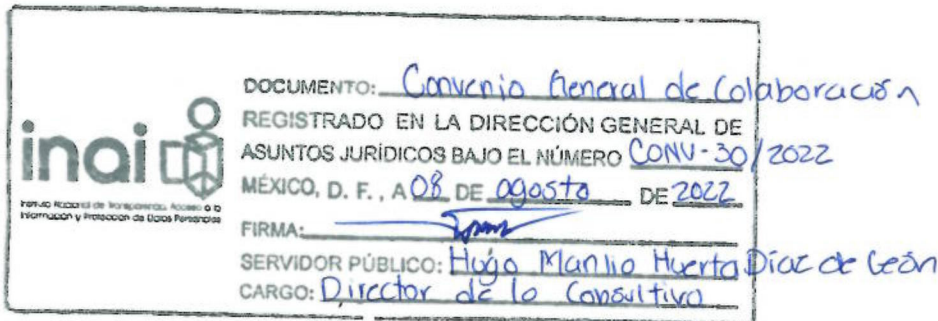 inai
Instituto Nacional de Transparencia, Acceso a la
Información y Protección de Datos Personales
DOCUMENTO: Convenio General de Colaboración
REGISTRADO EN LA DIRECCIÓN GENERAL DE
ASUNTOS JURÍDICOS BAJO EL NÚMERO CONV-30/2022
MÉXICO, D. F., A 08 DE agosto DE 2022
FIRMA:
SERVIDOR PÚBLICO: Hugo Manlio Huerta Díaz de León
CARGO: Director de lo Consultivo